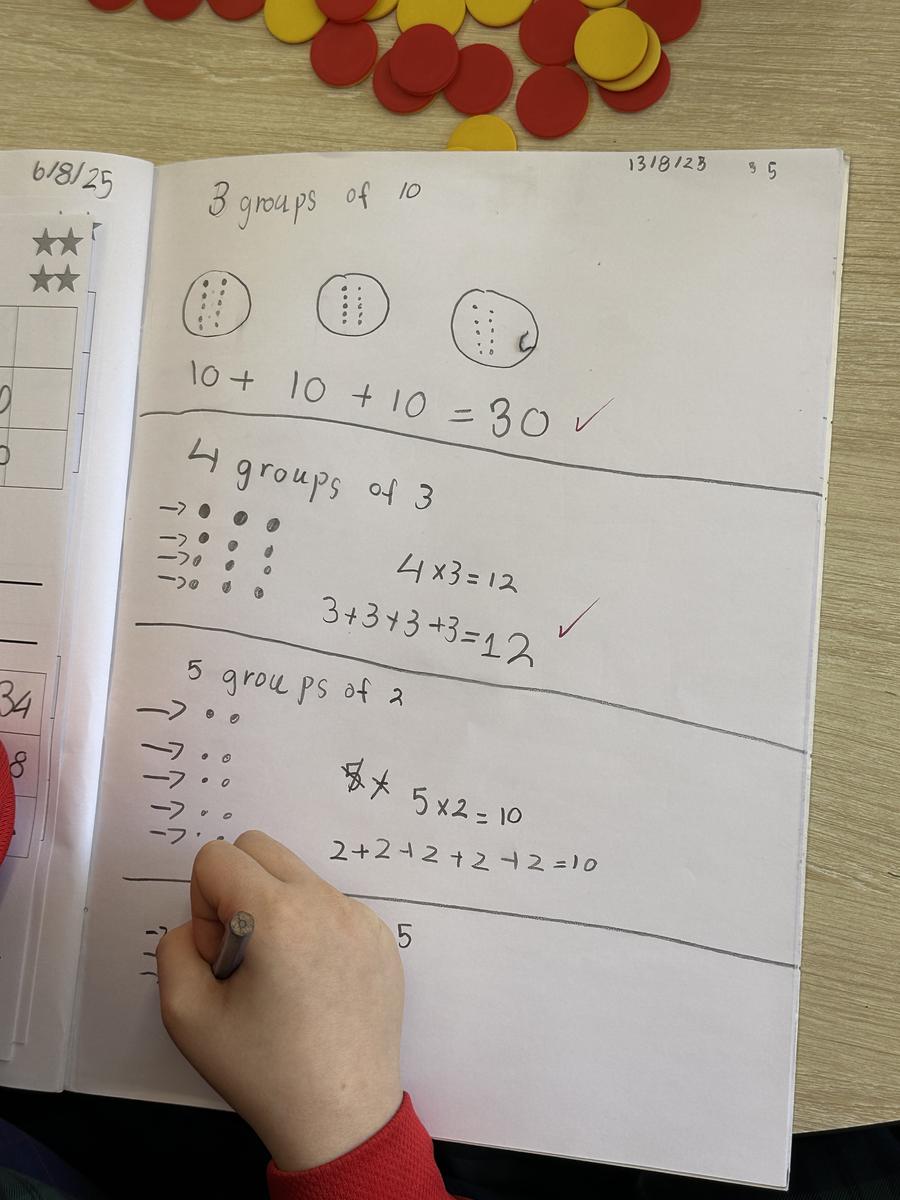 6/8/25
34
8
13/8/25
3 groups of 10
10 + 10 + 10 = 30
4 groups of 3
4 x 3 = 12
3+3+3+3=12
5 groups of 2
5 x 2 = 10
2+2+2+2+2=10
5